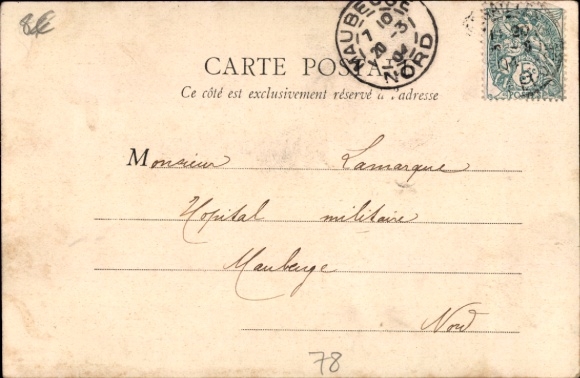 8€
MAUBEUGE
7 10
20 -3
04
NORD
CARTE POSTALE
Ce côté est exclusivement réservé à l'adresse
Monsieur Lamarque
Hopital militaire
Maubeuge
Nord
78